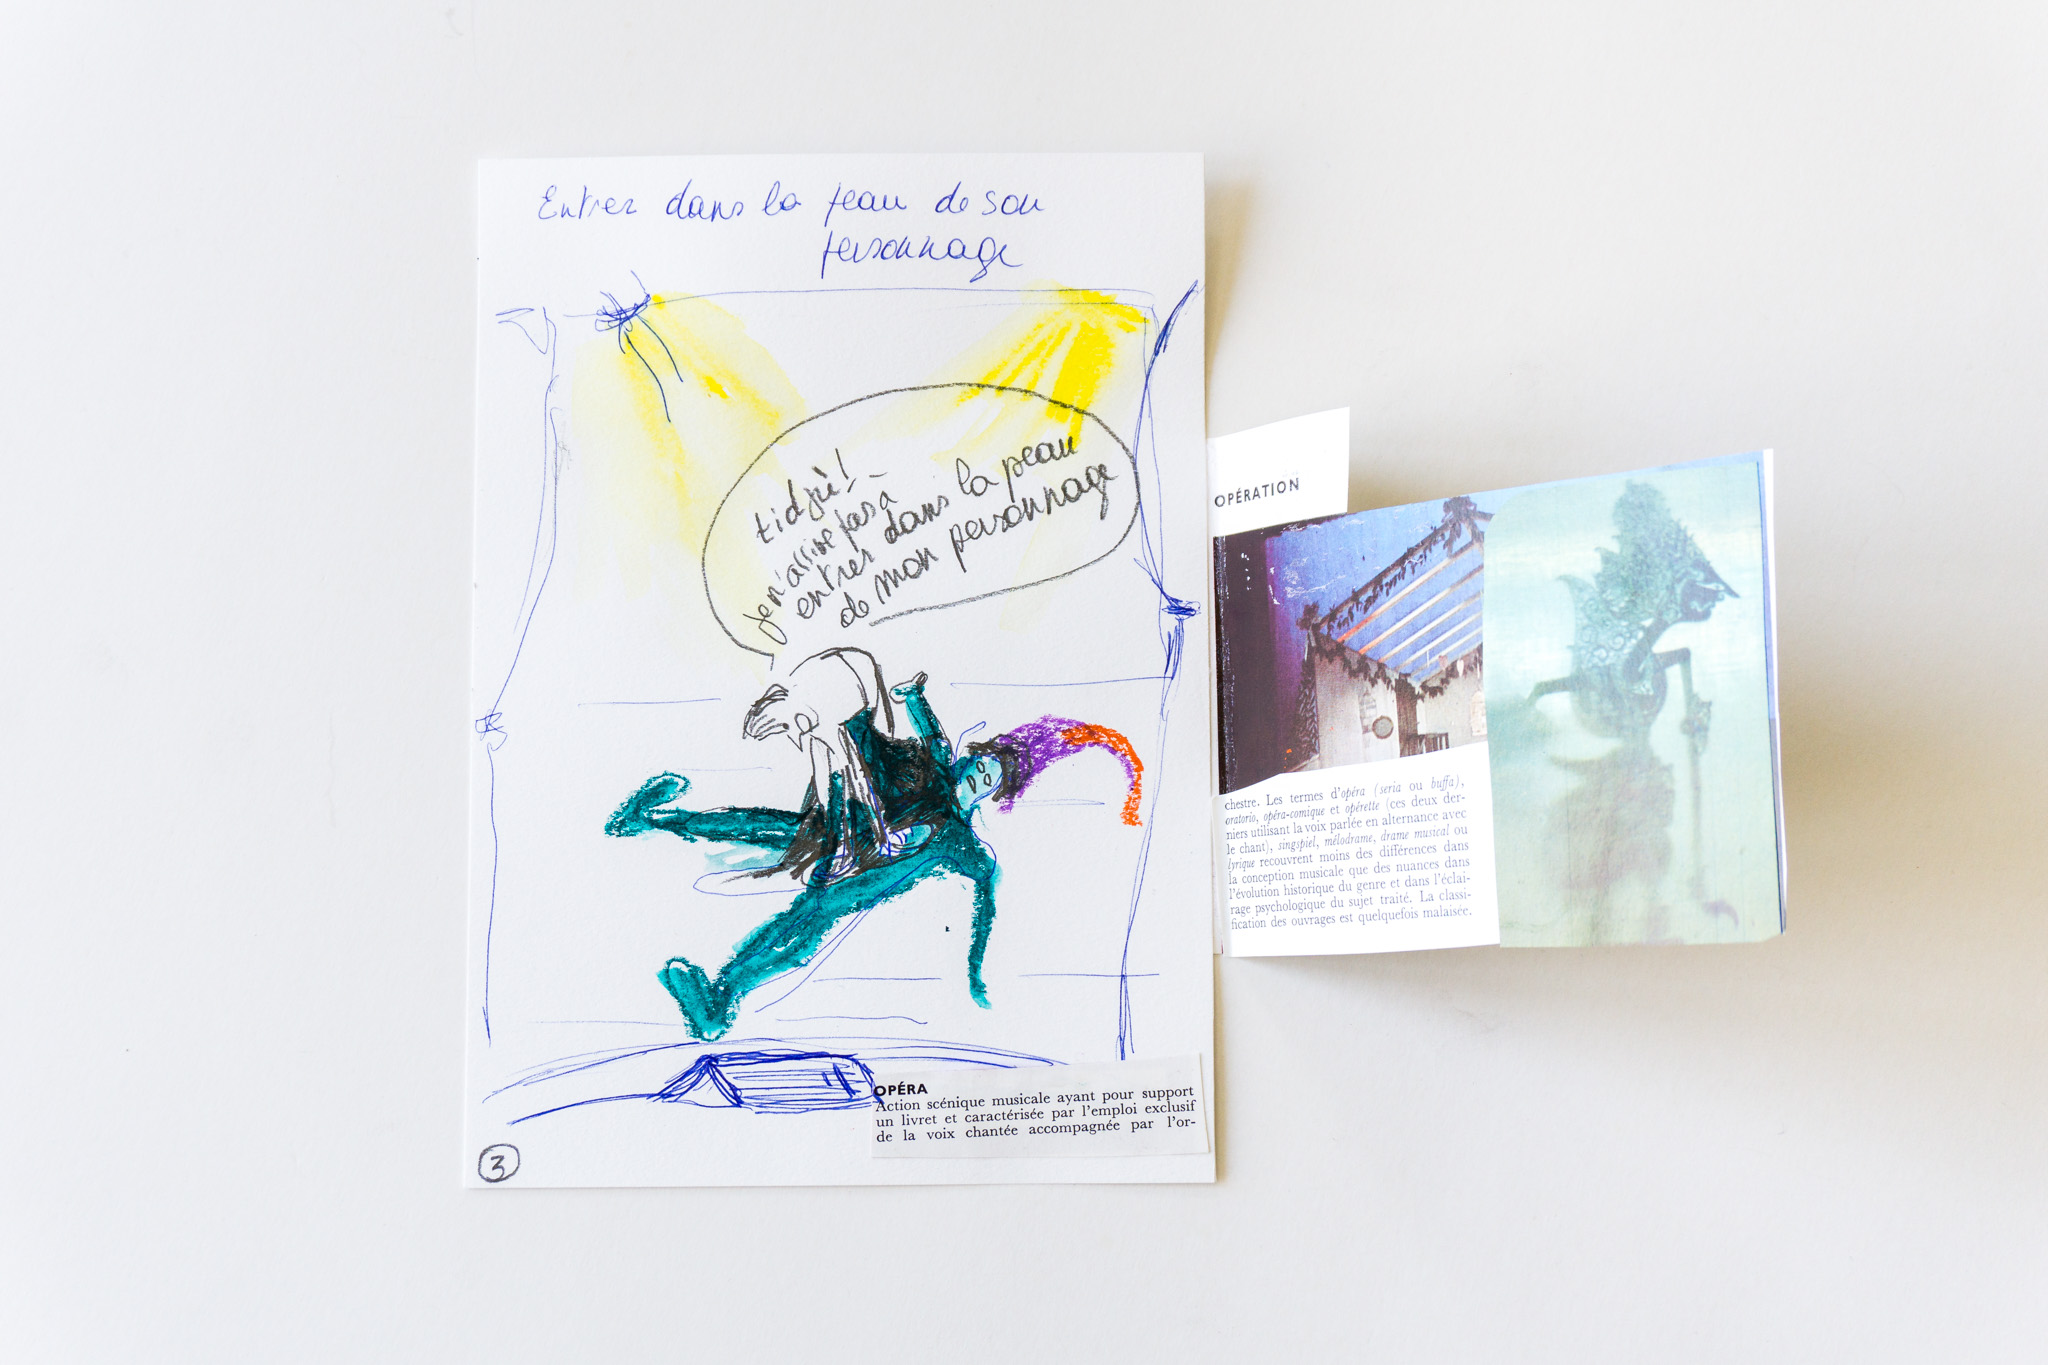 Entrer dans la peau de son
personnage
tidjü!
je n'arrive pas à
entrer dans la peau
de mon personnage
OPÉRA
Action scénique musicale ayant pour support
un livret et caractérisée par l'emploi exclusif
de la voix chantée accompagnée par l'or-
3
OPÉRATION
chestre. Les termes d'opéra (seria ou buffa),
oratorio, opéra-comique et opérette (ces deux der-
niers utilisant la voix parlée en alternance avec
le chant), singspiel, mélodrame, drame musical ou
lyrique recouvrent moins des différences dans
la conception musicale que des nuances dans
l'évolution historique du genre et dans l'éclai-
rage psychologique du sujet traité. La classi-
fication des ouvrages est quelquefois malaisée.